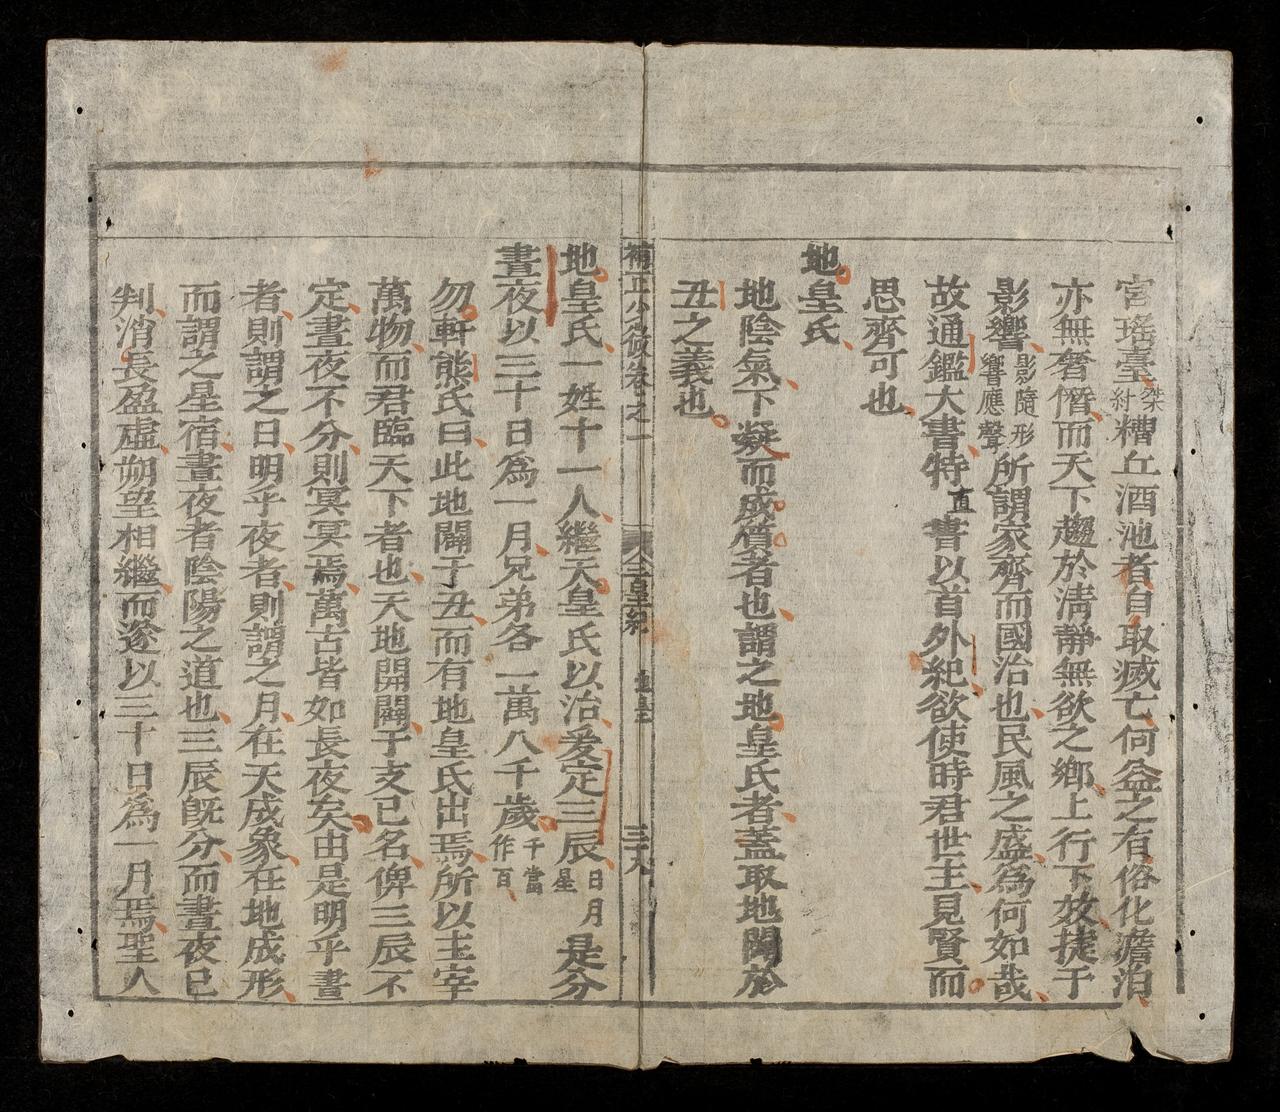 宮瑤臺桀紂糟丘酒池者自取滅亡何益之有俗化澹泊
亦無奢僭而天下趨於淸靜無欲之鄉上行下效捷于
影響影隨形響應聲所謂家齊而國治也民風之盛爲何如哉
故通鑑大書特直書以首外紀欲使時君世主見賢而
思齊可也
地皇氏
地陰氣下凝而成質者也謂之地皇氏者蓋取地闢於
丑之義也
補正少微卷之一 三皇紀 地皇 三十八
地皇氏一姓十一人繼天皇氏以治爰定三辰日月星是分
晝夜以三十日爲一月兄弟各一萬八千歲千當作百
勿軒熊氏曰此地闢于丑而有地皇氏出焉所以主宰
萬物而君臨天下者也天地開闢干支已名俾三辰不
定晝夜不分則冥冥焉萬古皆如長夜矣由是明乎晝
者則謂之日明乎夜者則謂之月在天成象在地成形
而謂之星宿晝夜者陰陽之道也三辰旣分而晝夜已
判消長盈虛朔望相繼而遂以三十日爲一月焉聖人